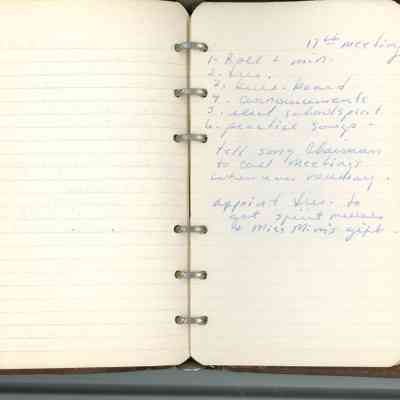 17th meeting
1. Roll & min.
2. Tres.
3. board
4. announcements
5. school spirit
6. practice songs -
tell song Chairman
to call meetings
whenever necessary.
appoint Tres. to
get spirit
& Miss Mim's gift.